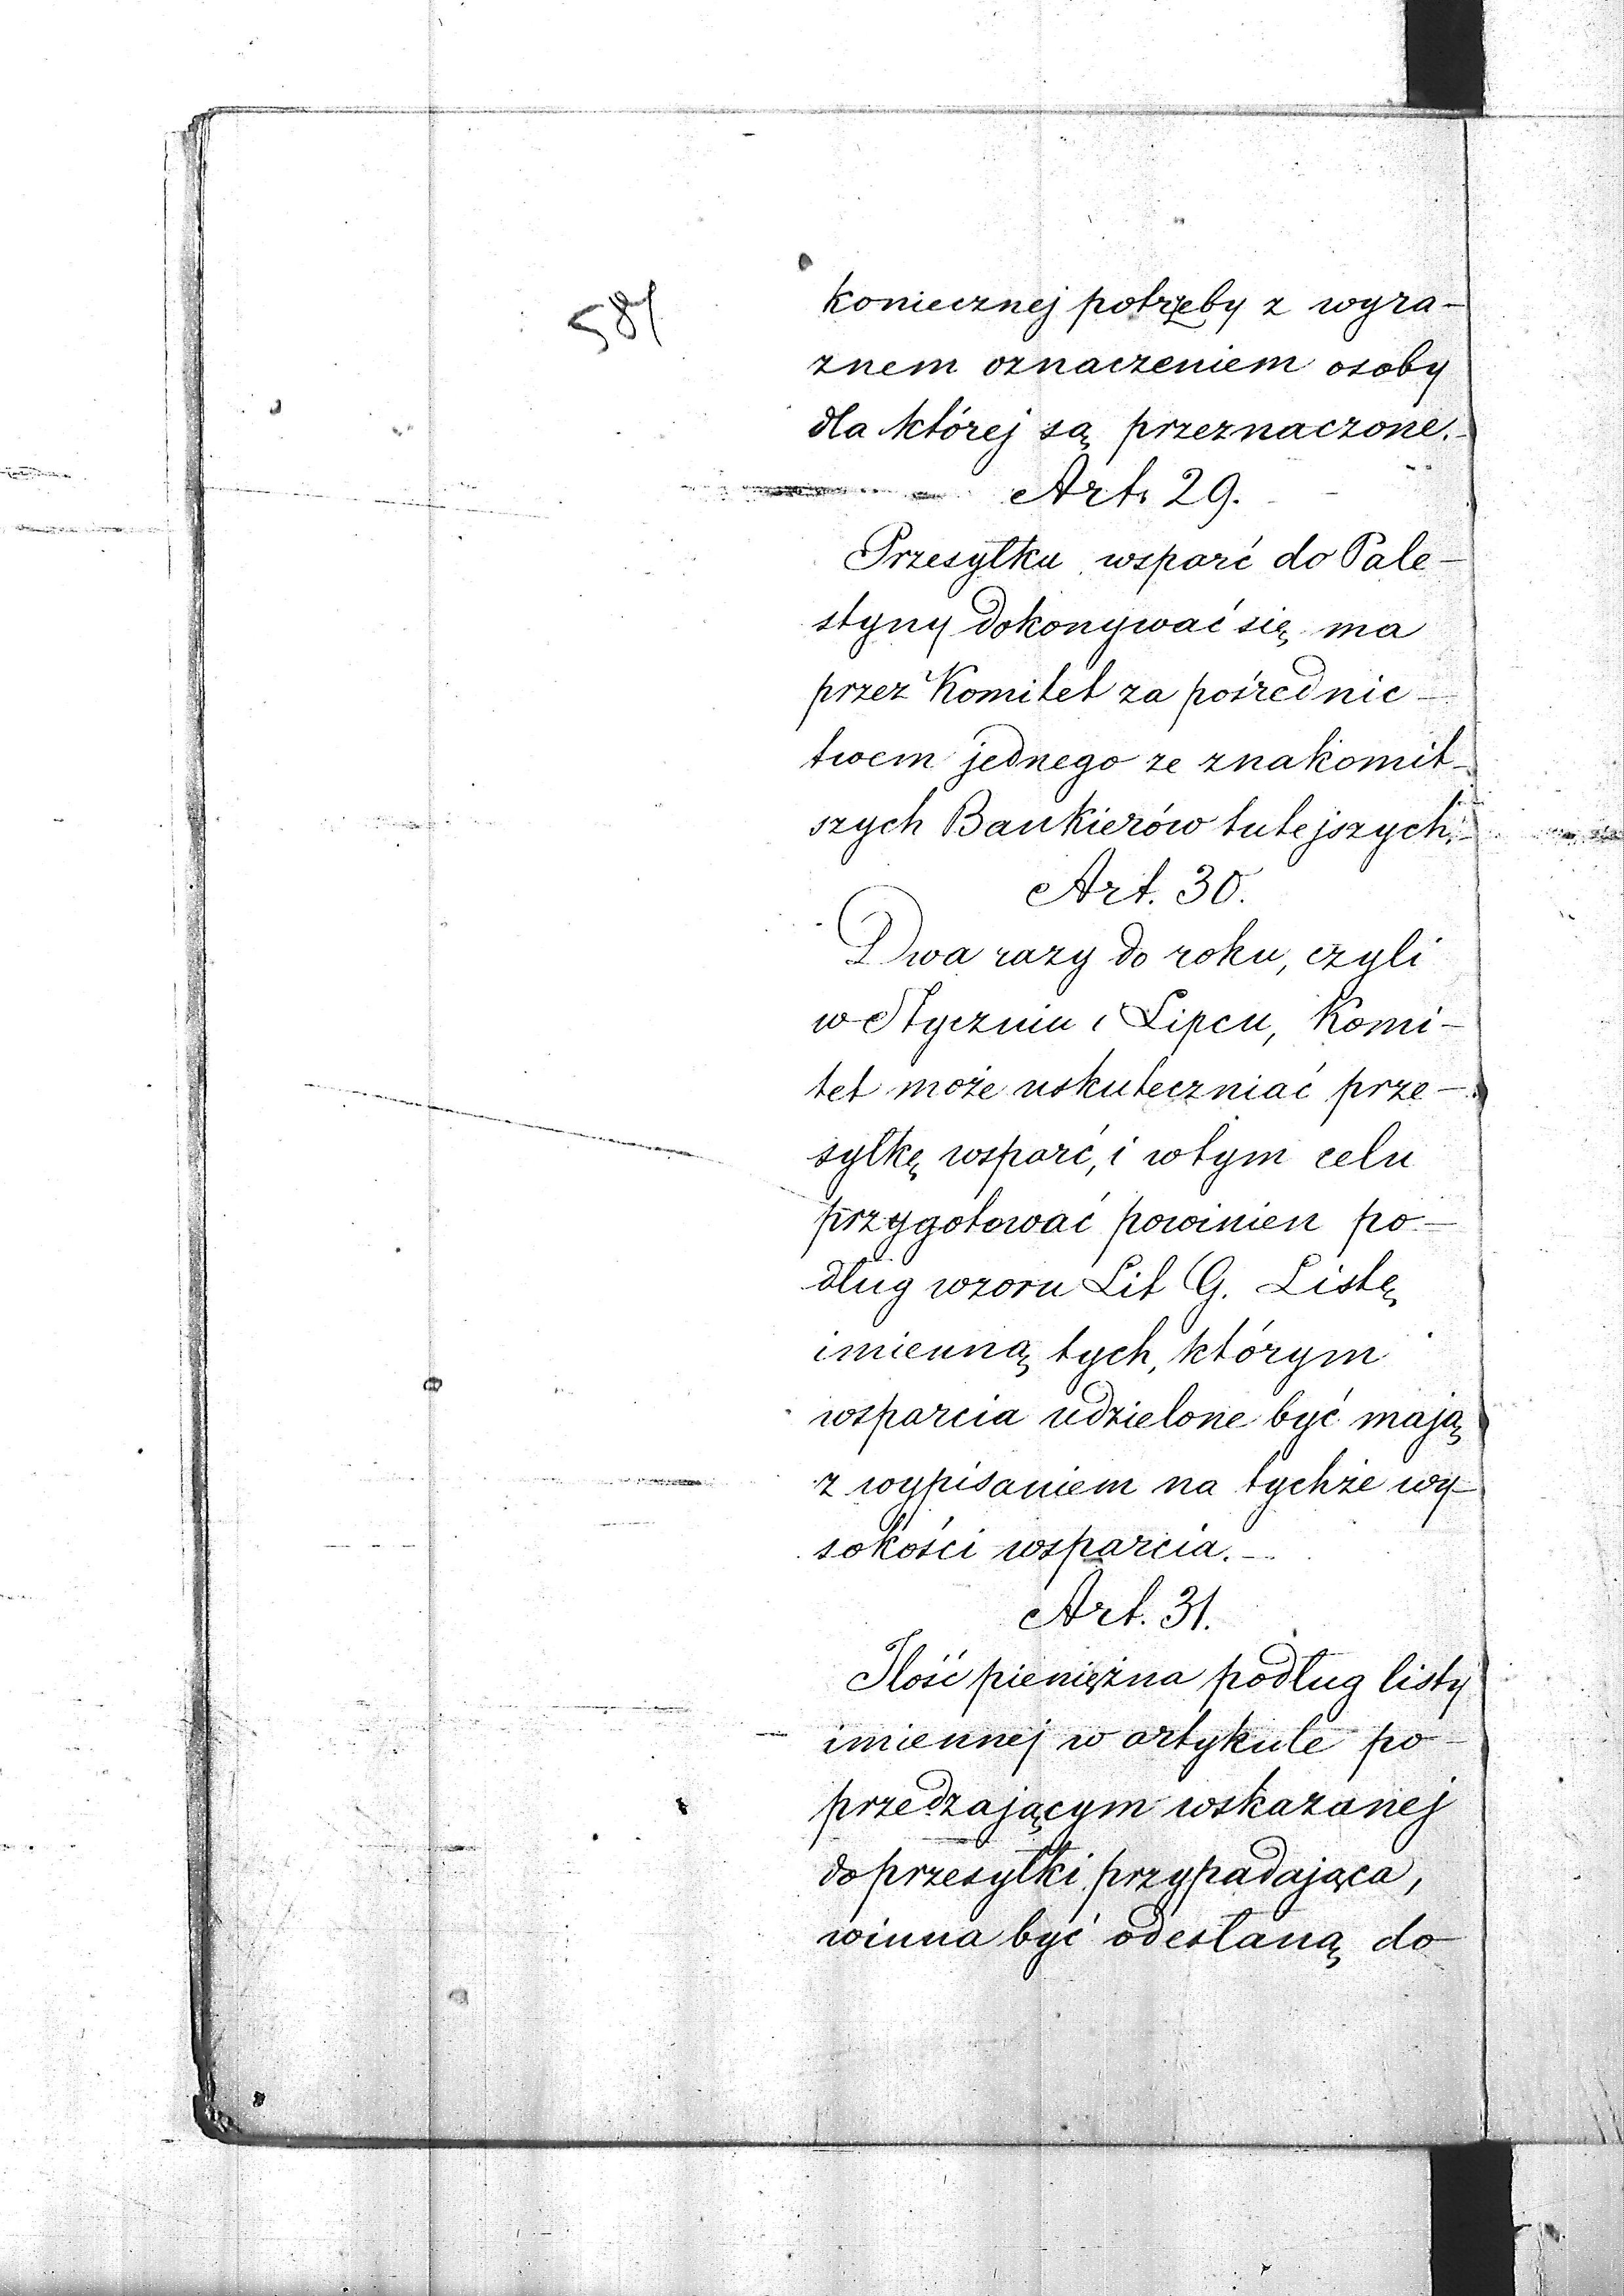 581
koniecznej potrzeby z wyra-
znem oznaczeniem osoby
dla której są przeznaczone.-
Art. 29.
Przesyłka wsparć do Pale-
styny dokonywać się ma
przez Komitet za pośrednic-
twem jednego ze znakomit-
szych Bankierów tutejszych.-
Art. 30.
Dwa razy do roku, czyli
w Styczniu i Lipcu, Komi-
tet może uskuteczniać prze-
syłkę wsparć, i w tym celu
przygotować powinien po-
dług wzoru Lit G. Listę
imienną tych, którym
wsparcia udzielone być mają
z wypisaniem na tychże wy-
sokości wsparcia.-
Art. 31.
Ilość pieniężna podług listy
imiennej w artykule po-
przedzającym wskazanej
do przesyłki przypadająca,
winna być odesłaną do